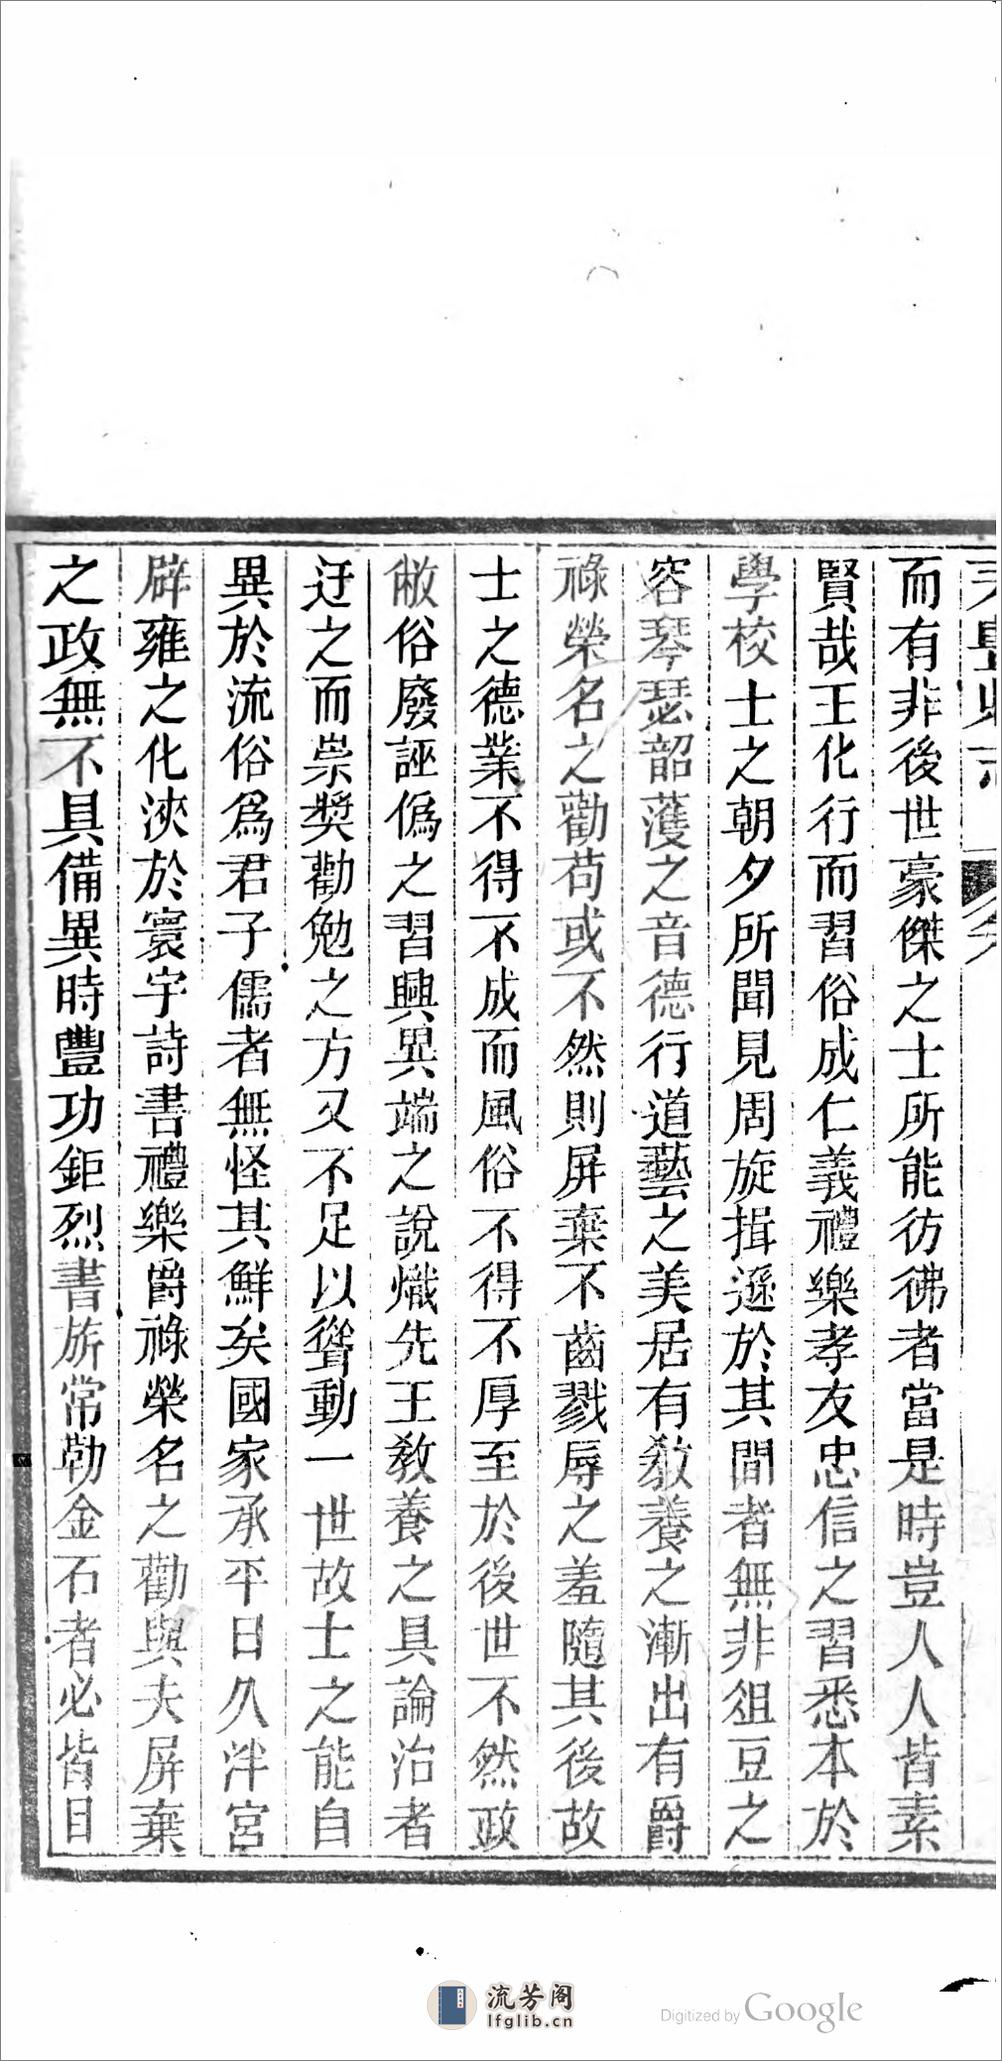 而有非後世豪傑之士所能彷彿者當是時豈人人皆素
賢哉王化行而習俗成仁義禮樂孝友忠信之習悉本於
學校士之朝夕所聞見周旋揖遜於其間者無非俎豆之
容琴瑟韶濩之音德行道藝之美居有敎養之漸出有爵
祿榮名之勸苟或不然則屏棄不齒戮辱之羞隨其後故
士之德業不得不成而風俗不得不厚至於後世不然政
敝俗廢誣僞之習興異端之說熾先王敎養之具論治者
迂之而崇奬勸勉之方又不足以聳動一世故士之能自
異於流俗爲君子儒者無怪其鮮矣國家承平日久泮宮
辟雍之化浹於寰宇詩書禮樂爵祿榮名之勸與夫屏棄
之政無不具備異時豐功鉅烈書旂常勒金石者必皆目
流芳阁
lfglib.cn
Digitized by Google